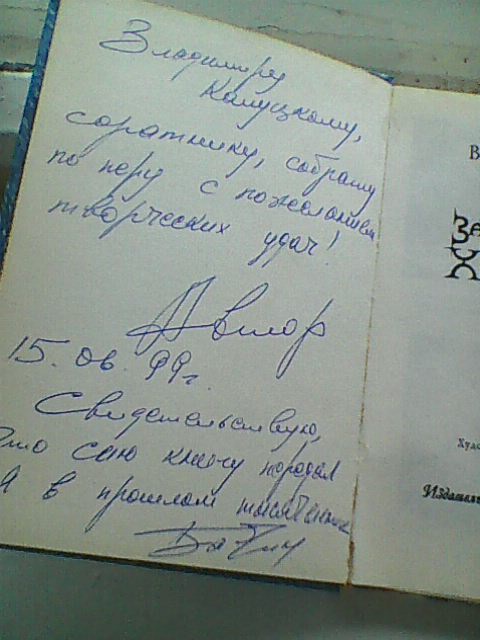 Владимиру
Калуцкому,
соратнику, собрату
по перу с пожеланием
творческих удач!
Автор
15.06.99г.
Свидетельствую,
что сию книгу передал
я в прошлом тысячелетии
В
За
Х
Худо
Издатель